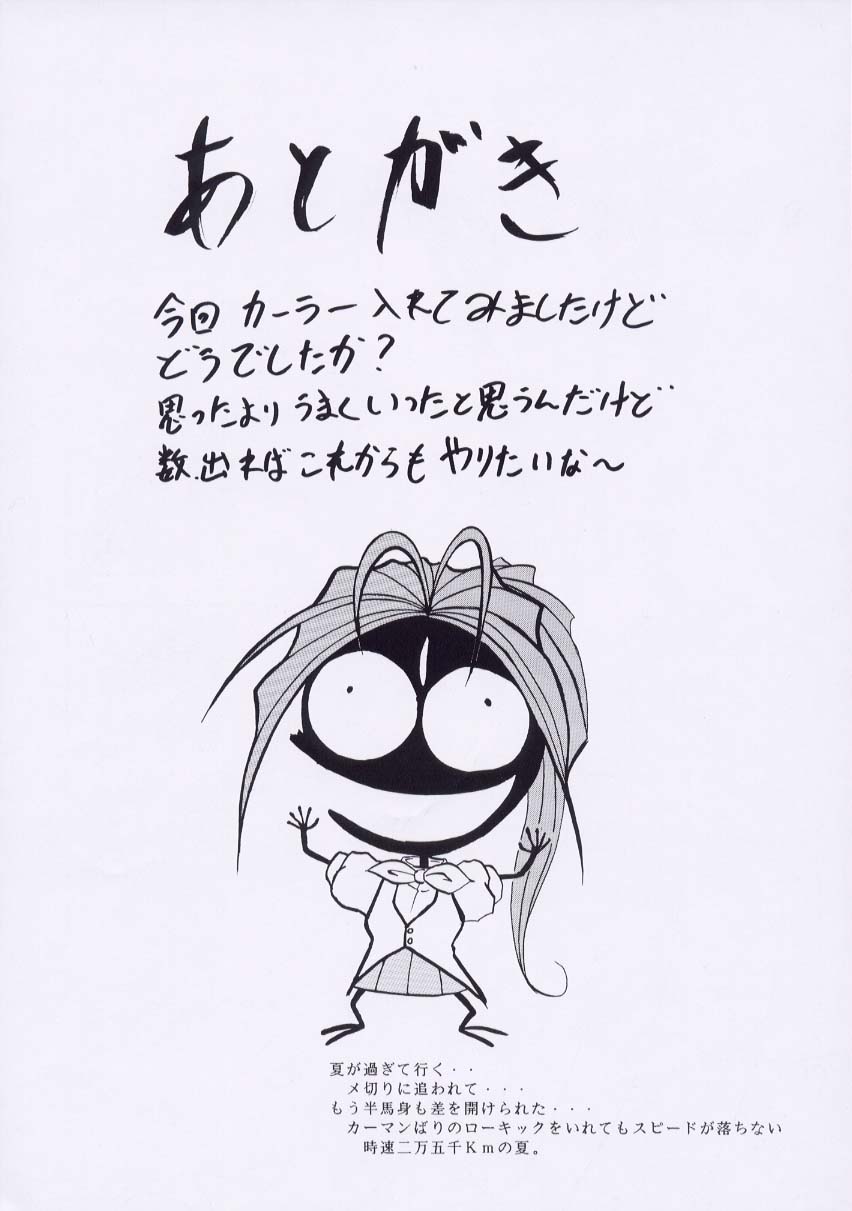 あとがき
今回 カーラー入れてみましたけど
どうでしたか?
思ったよりうまくいったと思うんだけど
数出ればこれからもやりたいな～
夏が過ぎて行く・・
〆切りに追われて・・・
もう半馬身も差を開けられた・・・
カーマンばりのローキックをいれてもスピードが落ちない
時速二万五千Ｋｍの夏。